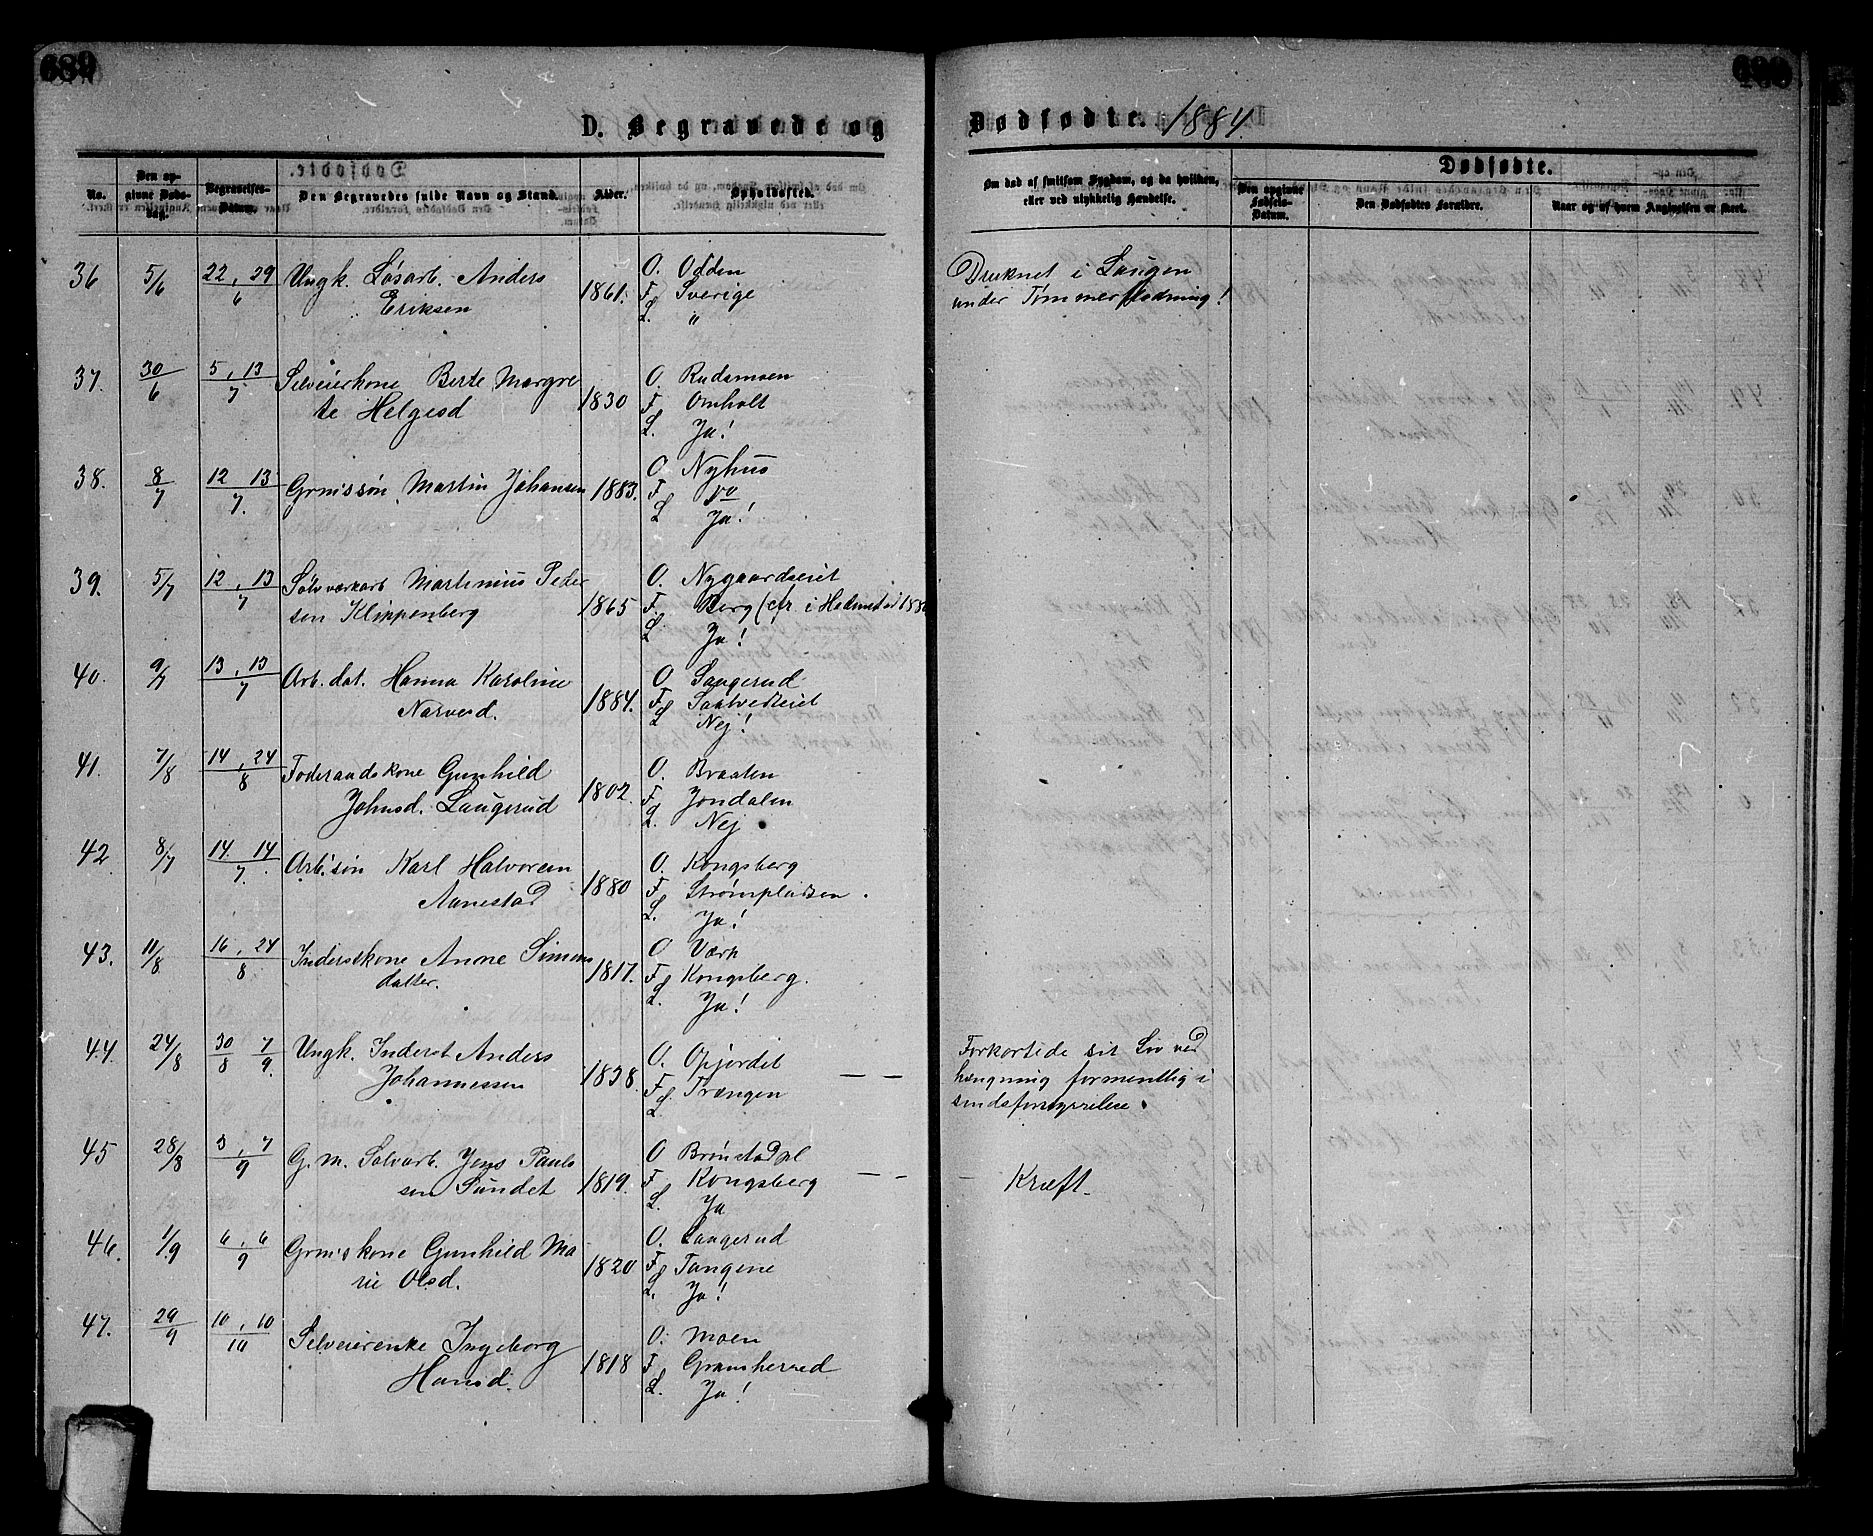 689
D. Begravede og
Dødfødte. 1884.
No.
Den opgivne Dødsdag.
Begravelses-Datum.
Den Begravedes fulde Navn og Stand.
Alder.
Opholdssted.
Om død af smitsom Sygdom, og da hvilken, eller ved ulykkelig Hændelse.
Dødfødte.
Den opgivne Fødsels-Datum.
Den Dødfødtes Forældre.
Naar og af hvem Angivelsen er skeet.
36 5/6 22, 29/6 Ungk. Løsarb. Anders
Eriksen 1861.
O. Odden
F. Sverige
L. "
Druknet i Laugen
under Tømmerflødning!
37. 30/6 5, 13/7 Selveierkone Berte Margre
te Helgesd 1830
O. Rudsmoen
F. Omholt
L. Ja!
38. 8/7 12 13/7. Grnissøn Martin Johansen 1883.
O. Nyhus
F. do
L Ja!
39. 5/7 12, 13/7 Sølvværkarb Martinius Peder
sen Klippenberg 1865
O. Nygaardseiet
F. Berg (cfr. i Hedenstad 188
L. Ja!
40. 9/7 13, 13/7 Arb. dat. Hanna Karoline
Narvesd. 1884.
O Laugerud
F. Saatvedteiet
L Nej!
41. 7/8 14, 24/8 Føderaadskone Gunhild
Johnsd. Laugerud 1802.
O. Braaten
F. Jondalen
L. Nej
42 8/7 14. 14/7. Arb.søn Karl Halvorsen
Aanestad 1880
O. Kongsberg
F. Strømpladsen.
L. Ja!
43. 11/8 16, 24/8 Inderstkone Anne Simens
datter. 1817.
O Værk
F. Kongsberg.
L. Ja!
44. 24/8 30/8 7/9. Ungk. Inderst Anders
Johannessen 1838.
O. Opjordet
F. Trængen
L.
Forkortede sit Liv ved
hængning formentlig i
sindsforvirrelse.
45 28/8 3, 7/9 G. m. Sølvarb. Jens Pauls
sen Sundet 1819.
O Brønstadpl
F. Kongsberg
L. Ja
Kræft
46. 1/9 6, 6/9 Grniskone Gunhild Ma
rie Olsd. 1820
O. Laugerud
F. Tangene
L. Ja!
47. 29/9 10, 10/10 Selveierenke Ingeborg
Hansd. 1818
O. Moen
F. Gransherred
L. Ja!